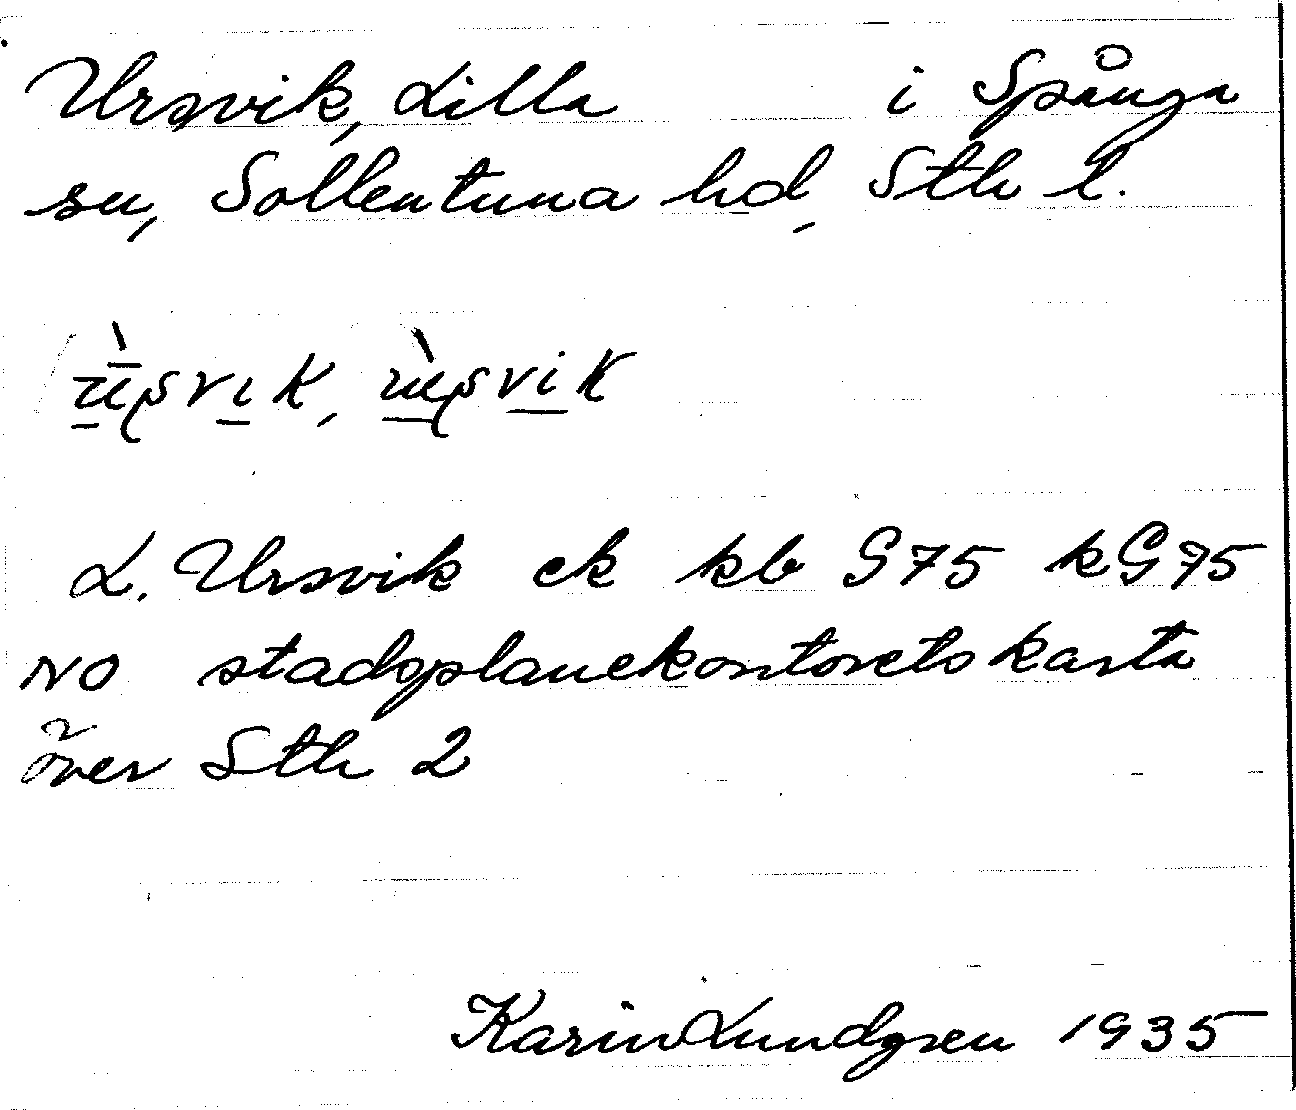 Ursvik, Lilla i Spånga
sn, Sollentuna hd, Sth l.
L. Ursvik ek kb G75 kG75
NO stadsplanekontorets karta
över Sth 2
Karin Lundgren 1935